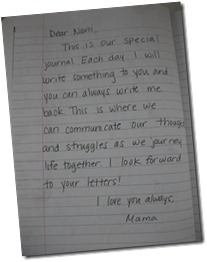 Dear Nomi,
This is our special
journal. Each day I will
write something to you and
you can always write me
back. This is where we
can communicate our
and struggles as we journey
life together. I look forward
to your letters!
I love you always,
Mama